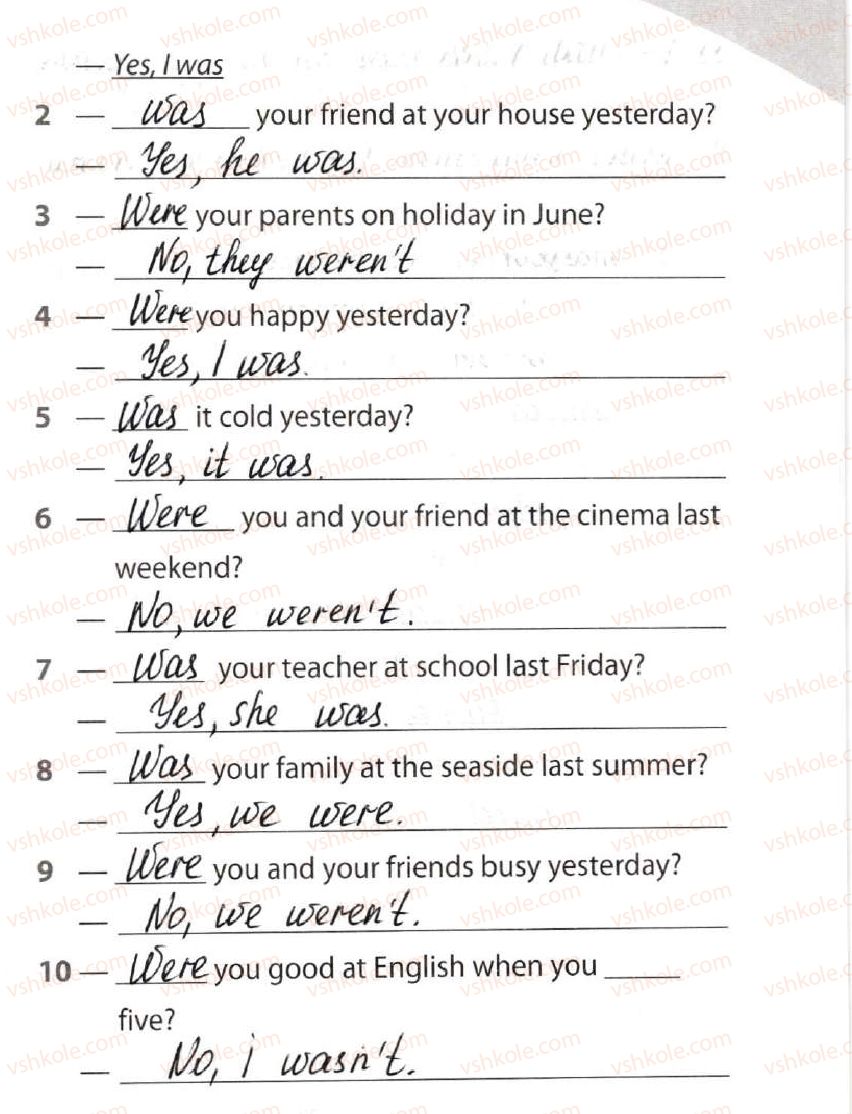 — Yes, I was
2 — was your friend at your house yesterday?
— Yes, he was.
3 — Were your parents on holiday in June?
— No, they weren't
4 — Were you happy yesterday?
— Yes, I was.
5 — Was it cold yesterday?
— Yes, it was.
6 — Were you and your friend at the cinema last
weekend?
— No, we weren't.
7 — Was your teacher at school last Friday?
— Yes, she was.
8 — Was your family at the seaside last summer?
— Yes, we were.
9 — Were you and your friends busy yesterday?
— No, we weren't.
10 — Were you good at English when you ______
five?
— No, i wasn't.
vshkole.com